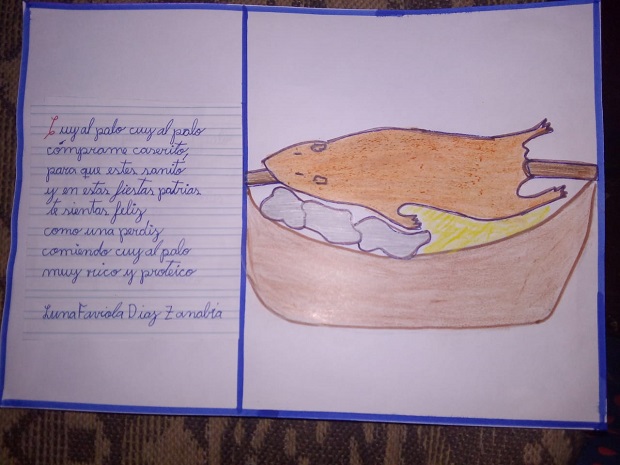 Cuy al palo cuy al palo
cómprame caserito,
para que estes sanito
y en estas fiestas patrias
te sientas feliz
como una perdiz
comiendo cuy al palo
muy rico y proteico
Luna Faviola Diaz Zanabria